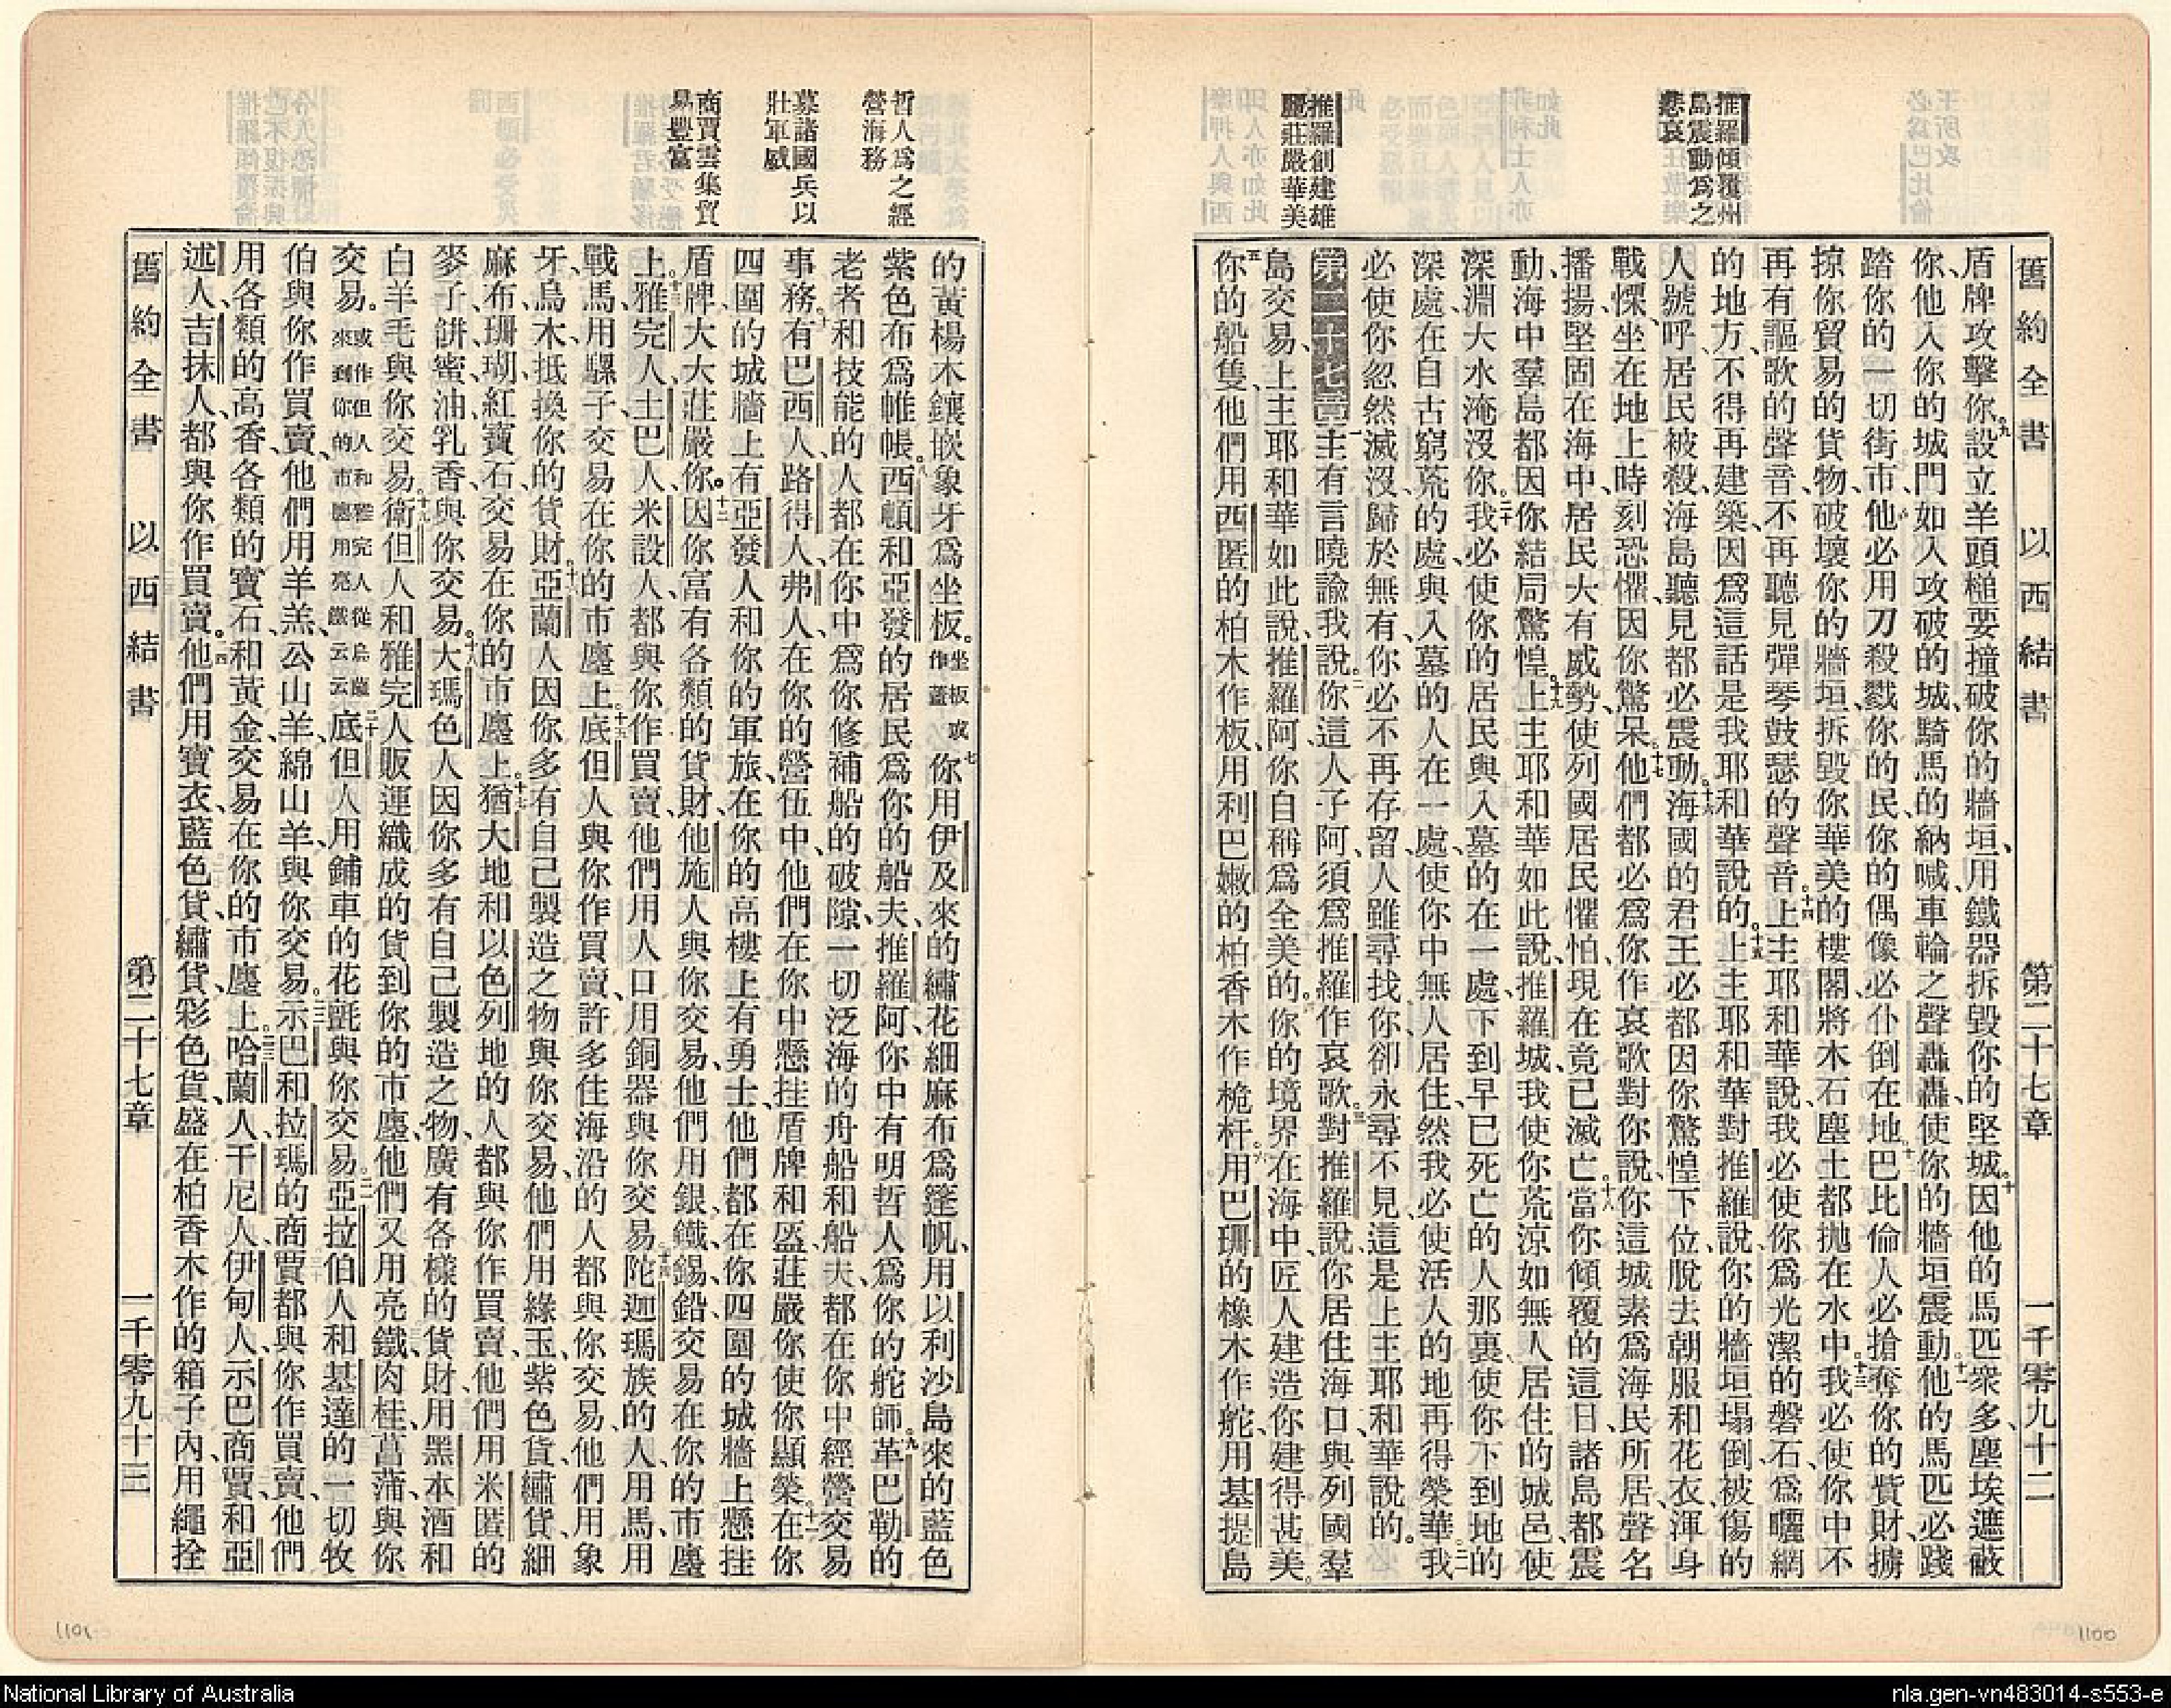 王所攻
必爲巴比倫
推羅傾覆州
島震動爲之
悲哀
推羅創建雄
麗莊嚴華美
舊約全書 以西結書 第二十七章 一千零九十二
盾牌攻擊你九設立羊頭槌要撞破你的牆垣用鐵器拆毀你的堅城十因他的馬匹衆多塵埃遮蔽
你他入你的城門如人攻破的城騎馬的吶喊車輪之聲轟轟使你的牆垣震動十一他的馬匹必踐
踏你的一切街市他必用刀殺戮你的民你的偶像必仆倒在地十二巴比倫人必搶奪你的貲財擄
掠你貿易的貨物破壞你的牆垣拆毀你華美的樓閣將木石塵土都拋在水中十三我必使你中不
再有謳歌的聲音不再聽見彈琴鼓瑟的聲音十四上主耶和華說我必使你爲光潔的磐石爲曬網
的地方不得再建築因爲這話是我耶和華說的十五上主耶和華對推羅說你的牆垣塌倒被傷的
人號呼居民被殺海島聽見都必震動十六海國的君王必都因你驚惶下位脫去朝服和花衣渾身
戰慄坐在地上時刻恐懼因你驚呆十七他們都必爲你作哀歌對你說你這城素爲海民所居聲名
播揚堅固在海中居民大有威勢使列國居民懼怕現在竟已滅亡十八當你傾覆的這日諸島都震
動海中羣島都因你結局驚惶十九上主耶和華如此說推羅城我使你荒凉如無人居住的城邑使
深淵大水淹沒你二十我必使你的居民與入墓的在一處下到早已死亡的人那裏使你下到地的
深處在自古窮荒的處與入墓的人在一處使你中無人居住然我必使活人的地再得榮華二一我
必使你忽然滅沒歸於無有你必不再存留人雖尋找你卻永尋不見這是上主耶和華說的
第二十七章一主有言曉諭我說二你這人子阿須爲推羅作哀歌三對推羅說你居住海口與列國羣
島交易上主耶和華如此說推羅阿你自稱爲全美的四你的境界在海中匠人建造你建得甚美
五你的船隻他們用西匿的柏木作板用利巴嫩的柏香木作桅杆六用巴珊的橡木作舵用基提島
哲人爲之經
營海務
募諸國兵以
壯軍威
商賈雲集貿
易豐富
的黃楊木鑲嵌象牙爲坐板坐板或作蓋七你用伊及來的繡花細麻布爲篷帆用以利沙島來的藍色
紫色布爲帷帳八西頓和亞發的居民爲你的船夫推羅阿你中有明哲人爲你的舵師九革巴勒的
老者和技能的人都在你中爲你修補船的破隙一切泛海的舟船和船夫都在你中經營交易
事務十有巴西人路得人弗人在你的營伍中他們在你中懸挂盾牌和盔莊嚴你使你顯榮十一在你
四圍的城牆上有亞發人和你的軍旅在你的高樓上有勇士他們都在你四圍的城牆上懸挂
盾牌大大莊嚴你十二因你富有各類的貨財他施人與你交易他們用銀鐵錫鉛交易在你的市廛
上十三雅完人土巴人米設人都與你作買賣他們用人口用銅器與你交易十四陀迦瑪族的人用馬用
戰馬用騾子交易在你的市廛上十五底但人與你作買賣許多住海沿的人都與你交易他們用象
牙烏木抵換你的貨財十六亞蘭人因你多有自己製造之物與你交易他們用綠玉紫色貨繡貨細
麻布珊瑚紅寶石交易在你的市廛上十七猶大地和以色列地的人都與你作買賣他們用米匿的
麥子餠蜜油乳香與你交易十八大瑪色人因你多有自己製造之物廣有各樣的貨財用黑本酒和
白羊毛與你交易十九衛但人和雅完人販運織成的貨到你的市廛他們又用亮鐵肉桂菖蒲與你
交易或作但人和雅完人從烏薩來到你的市廛用亮鐵云云二十底但人用鋪車的花氈與你交易二一亞拉伯人和基達的一切牧
伯與你作買賣他們用羊羔公山羊綿山羊與你交易二二示巴和拉瑪的商賈都與你作買賣他們
用各類的高香各類的寶石和黃金交易在你的市廛上二三哈蘭人干尼人伊甸人示巴商賈和亞
述人吉抹人都與你作買賣二四他們用寶衣藍色貨繡貨彩色貨盛在柏香木作的箱子內用繩拴
舊約全書 以西結書 第二十七章 一千零九十三
1101
1100
National Library of Australia
nla.gen-vn483014-s553-e